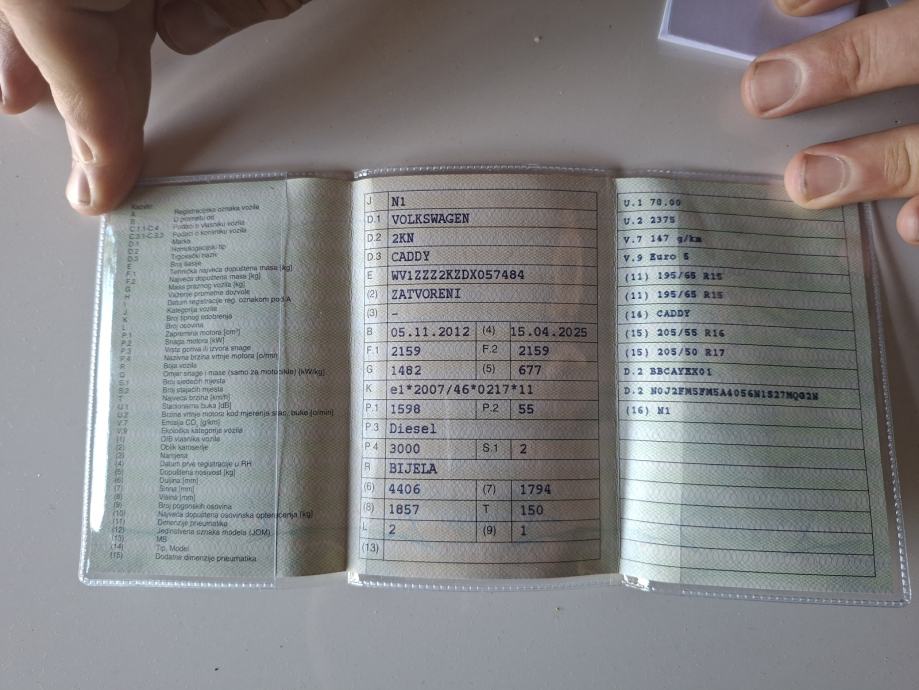 Kazalo:
A Registracijska oznaka vozila
B U prometu od
C.1.1-C.4 Podaci o vlasniku vozila
C.3.1-C.3.3 Podaci o korisniku vozila
D.1 Marka
D.2 Homologacijski tip
D.3 Trgovački naziv
E Broj šasije
F.1 Tehnička najveća dopuštena masa [kg]
F.2 Najveća dopuštena masa [kg]
G Masa praznog vozila [kg]
H Važenje prometne dozvole
I Datum registracije reg. oznakom pod A
J Kategorija vozila
K Broj tipnog odobrenja
L Broj osovina
P.1 Zapremina motora [cm³]
P.2 Snaga motora [kW]
P.3 Vrsta goriva ili izvora snage
P.4 Nazivna brzina vrtnje motora [o/min]
R Boja vozila
Q Omjer snage i mase (samo za motocikle) [kW/kg]
S.1 Broj sjedećih mjesta
S.2 Broj stajaćih mjesta
T Najveća brzina [km/h]
U.1 Stacionarna buka [dB]
U.2 Brzina vrtnje motora kod mjerenja stac. buke [o/min]
V.7 Emisija CO₂ [g/km]
V.9 Ekološka kategorija vozila
(1) OIB vlasnika vozila
(2) Oblik karoserije
(3) Namjena
(4) Datum prve registracije u RH
(5) Dopuštena nosivost [kg]
(6) Duljina [mm]
(7) Širina [mm]
(8) Visina [mm]
(9) Broj pogonskih osovina
(10) Najveća dopuštena osovinska opterećenja [kg]
(11) Dimenzije pneumatika
(12) Jedinstvena oznaka modela (JOM)
(13) MB
(14) Tip, Model
(15) Dodatne dimenzije pneumatika
J N1
D.1 VOLKSWAGEN
D.2 2KN
D.3 CADDY
E WV1ZZZ2KZDX057484
(2) ZATVORENI
(3) -
B 05.11.2012 (4) 15.04.2025
F.1 2159 F.2 2159
G 1482 (5) 677
K e1*2007/46*0217*11
P.1 1598 P.2 55
P.3 Diesel
P.4 3000 S.1 2
R BIJELA
(6) 4406 (7) 1794
(8) 1857 T 150
L 2 (9) 1
(13)
U.1 78.00
U.2 2375
V.7 147 g/km
V.9 Euro 5
(11) 195/65 R15
(11) 195/65 R15
(14) CADDY
(15) 205/55 R16
(15) 205/50 R17
D.2 BBCAYEX01
D.2 N0J2FM5FM5A4056N1S27MQG2N
(16) N1